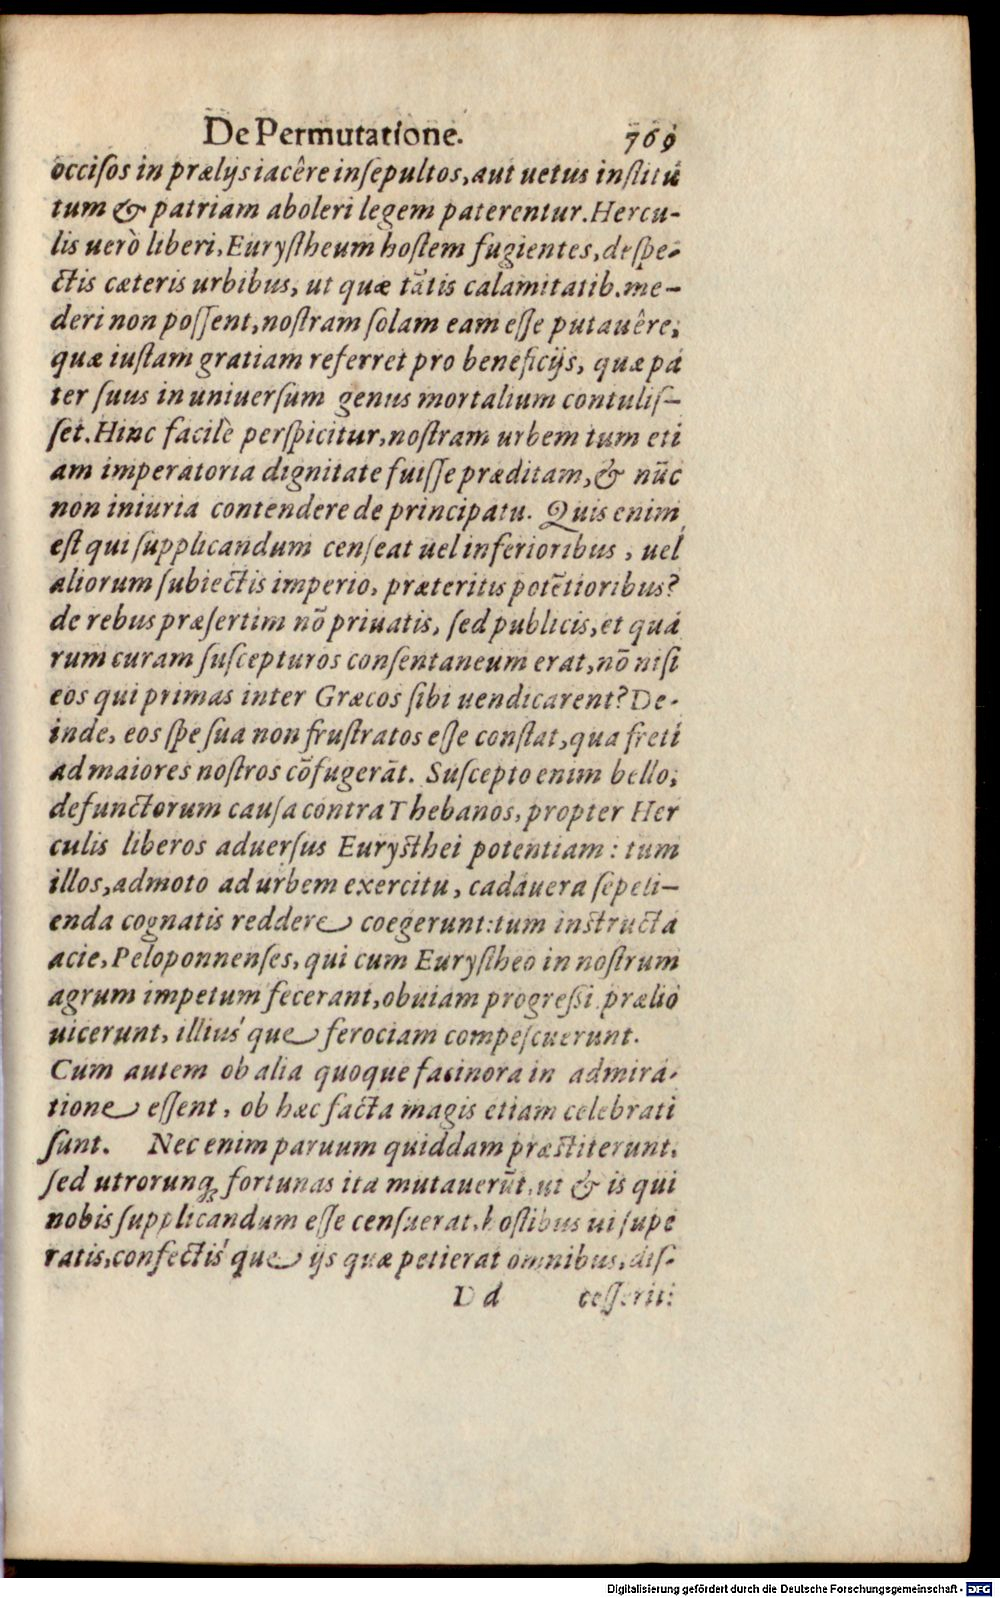 De Permutatione. 769
occiſos in prælijs iacêre inſepultos, aut uetus inſtitu
tum & patriam aboleri legem paterentur. Hercu-
lis uerò liberi, Euryſtheum hoſtem fugientes, deſpe-
ctis cæteris urbibus, ut quæ tãtis calamitatib. me-
deri non poſſent, noſtram ſolam eam eſſe putauêre,
quæ iuſtam gratiam referret pro beneficijs, quæ pa
ter ſuus in uniuerſum genus mortalium contuliſ-
ſet. Hinc facilè perſpicitur, noſtram urbem tum eti
am imperatoria dignitate fuiſſe præditam, & nũc
non iniuria contendere de principatu. Quis enim
eſt qui ſupplicandum cenſeat uel inferioribus, uel
aliorum ſubiectis imperio, præteritis potẽtioribus?
de rebus præſertim nõ priuatis, ſed publicis, et qua
rum curam ſuſcepturos conſentaneum erat, nõ niſi
eos qui primas inter Græcos ſibi uendicarent? De-
inde, eos ſpe ſua non fruſtratos eſſe conſtat, qua freti
ad maiores noſtros cõfugerãt. Suſcepto enim bello,
defunctorum cauſa contra Thebanos, propter Her
culis liberos aduerſus Euryſthei potentiam: tum
illos, admoto ad urbem exercitu, cadauera ſepeli-
enda cognatis reddere coegerunt: tum inſtructa
acie, Peloponnenſes, qui cum Euryſtheo in noſtrum
agrum impetum fecerant, obuiam progreſſi, prælio
uicerunt, illiuśque ferociam compeſcuerunt.
Cum autem ob alia quoque facinora in admira-
tione eſſent, ob hæc facta magis etiam celebrati
ſunt. Nec enim paruum quiddam præſtiterunt,
ſed utrorunq; fortunas ita mutauerũt, ut & is qui
nobis ſupplicandum eſſe cenſuerat, hoſtibus ui ſupe
ratis, confectiśque ijs quæ petierat omnibus, diſ-
D d ceſſerit:
Digitalisierung gefördert durch die Deutsche Forschungsgemeinschaft - DFG